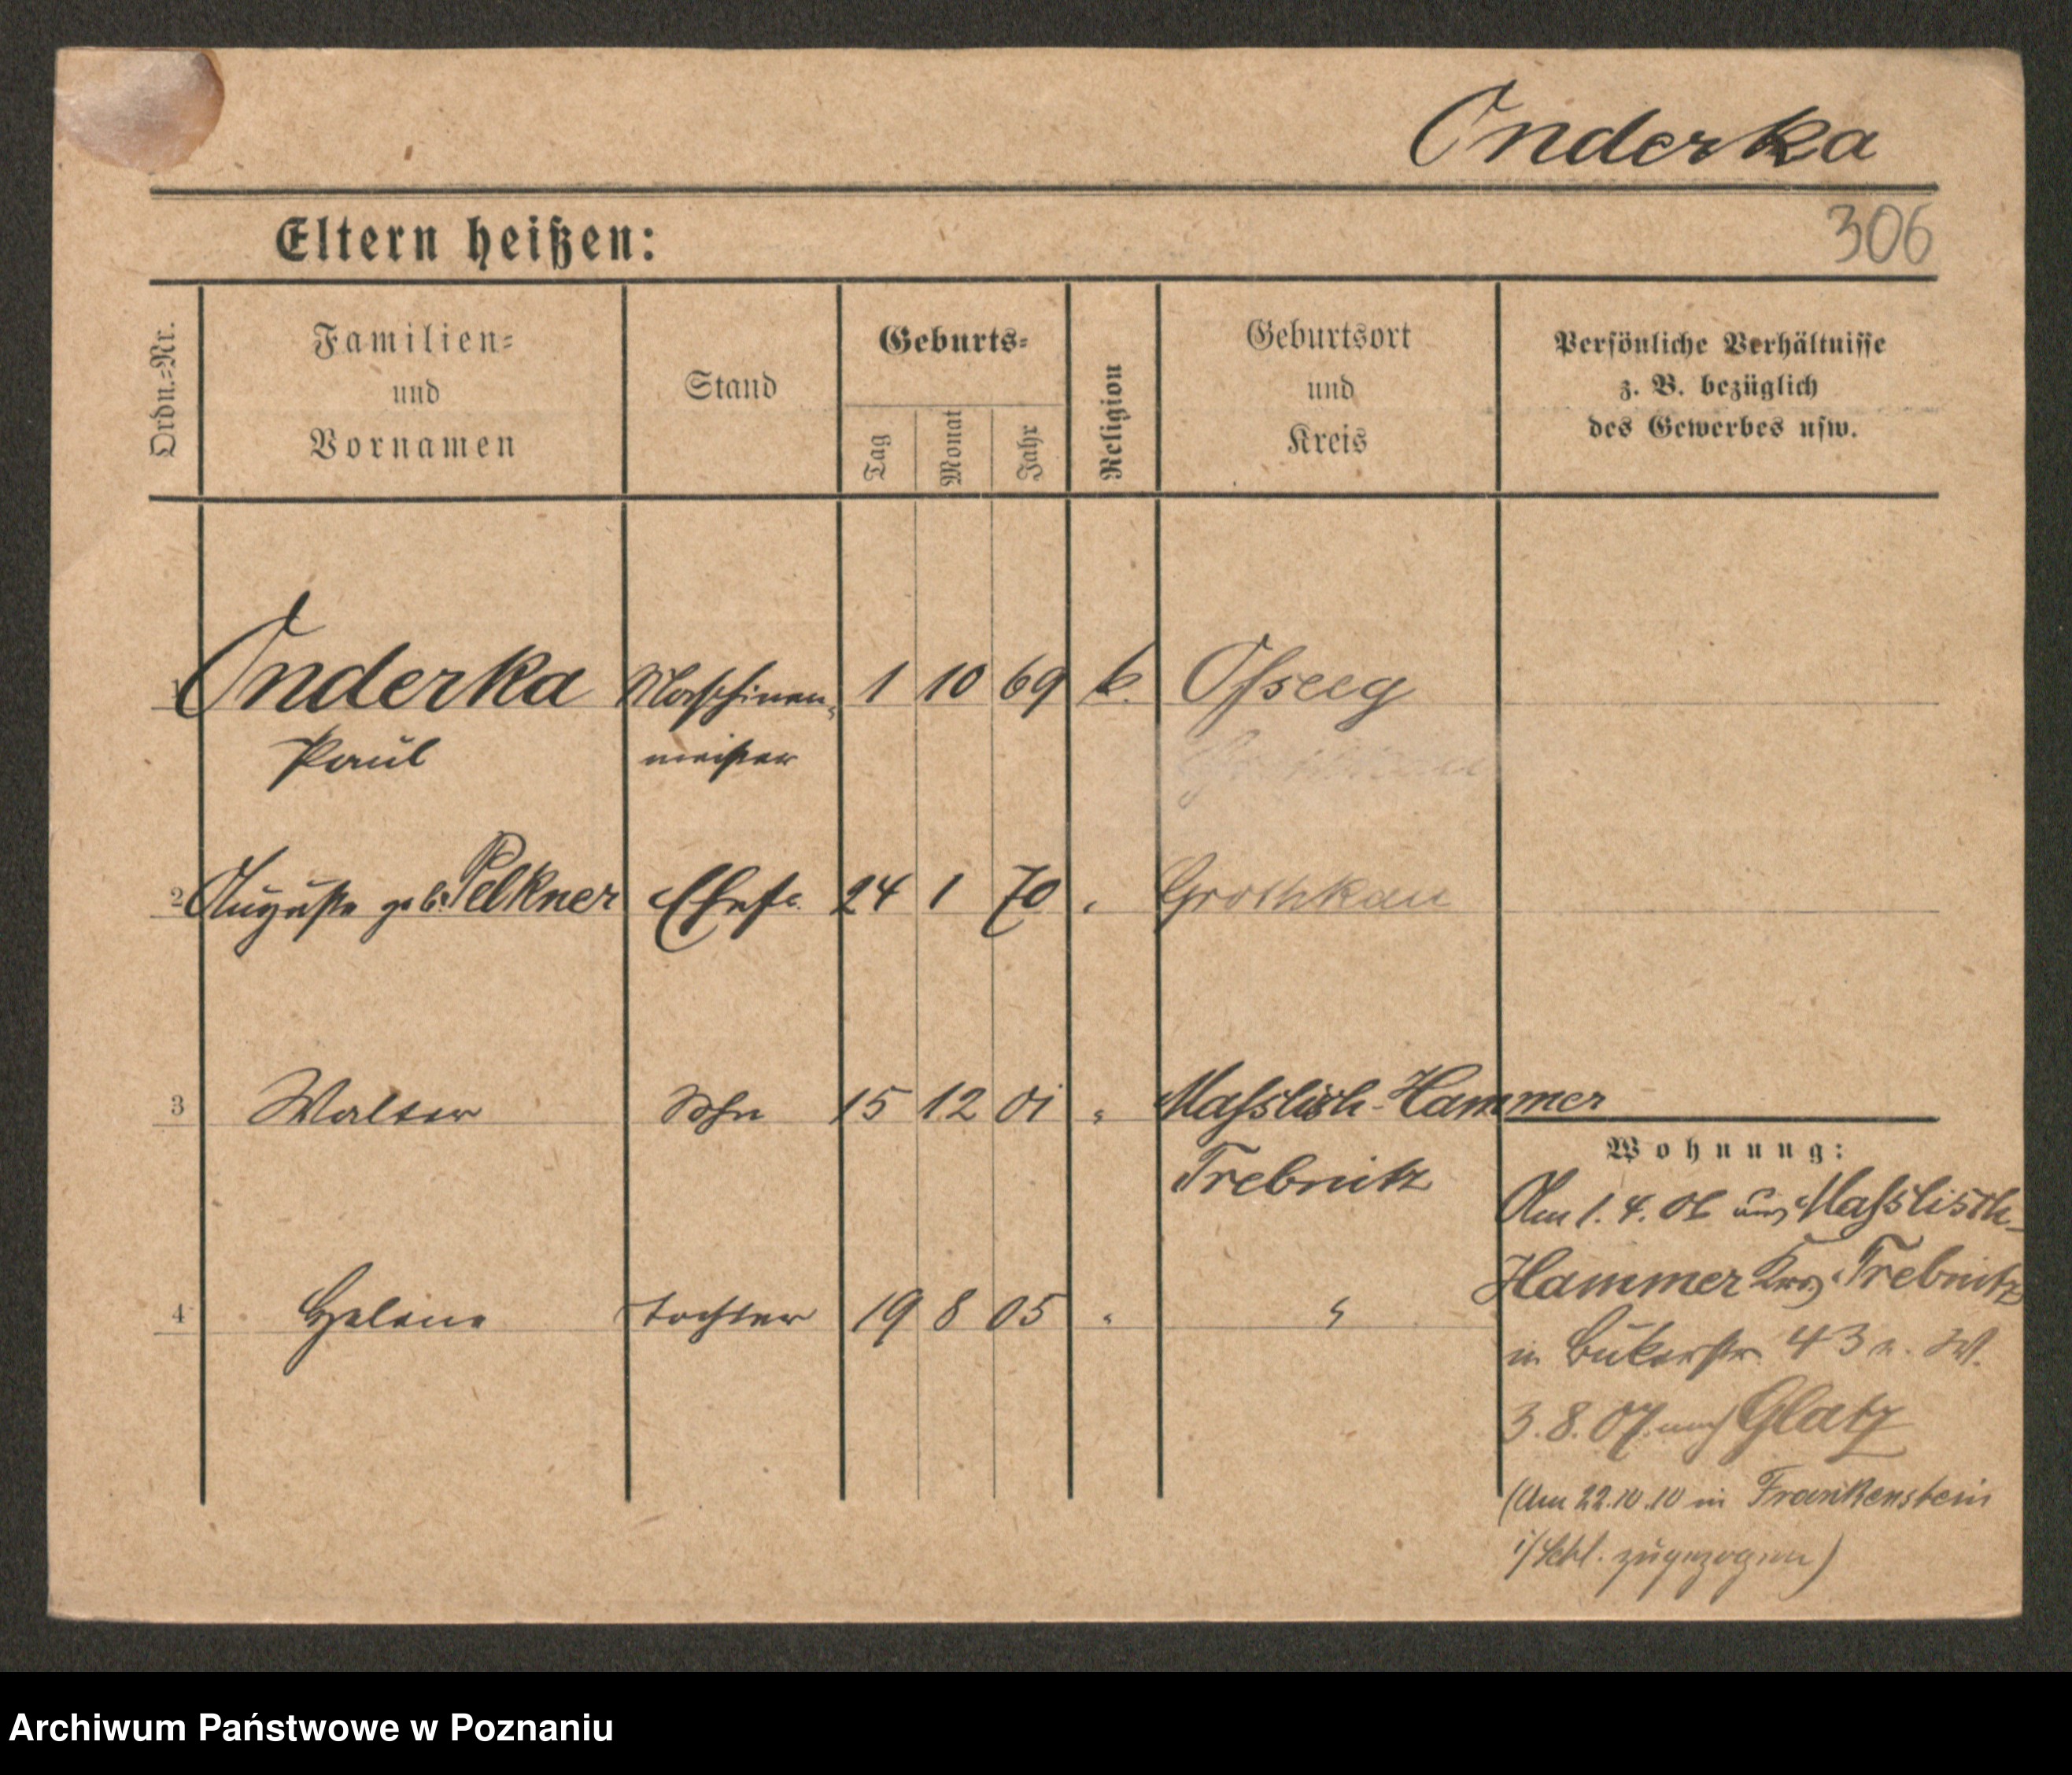 Onderka
306
Eltern heißen:
Ordn.-Nr.
Familien-
und
Vornamen
Stand
Geburts-
Tag
Monat
Jahr
Religion
Geburtsort
und
Kreis
Persönliche Verhältnisse
z. B. bezüglich
des Gewerbes usw.
1 Onderka Maschinen- 1 10 69 k. Ossseg
Paul meister
2 Auguste geb. Pelkner Ehefr. 24 1 70 " Grothkau
3 Walter Sohn 15 12 01 " Masslisch-Hammer
Trebnitz
4 Helene Tochter 19 8 05 " "
Wohnung:
Am 1.4.06 aus Masslisch-
Hammer Krs Trebnitz
in Bukerstr. 43
3.8.07 nach Glatz
(Am 22.10.10 in Frankenstein
i/Schl. zugezogen)
Archiwum Państwowe w Poznaniu